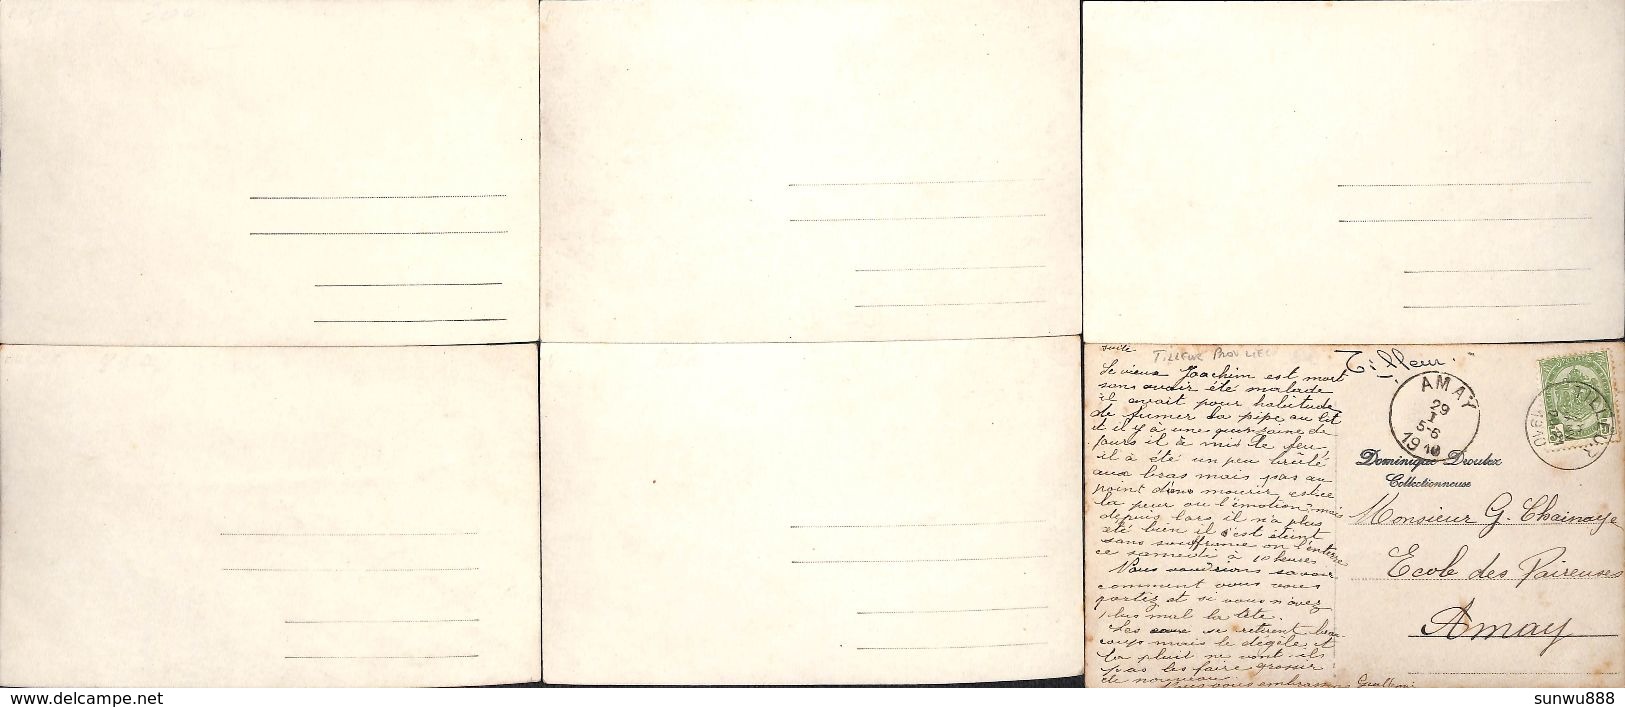 suite.
TILLEUR
Tilleur.
Le vieux Joachim est mort
sans avoir été malade
il avait pour habitude
de fumer la pipe au lit
et il y à une quinzaine de
jours il à mis le feu,
il à été un peu brûlé
aux bras mais pas au
point d'en mourir, est-ce
la peur ou l'émotion, mais
depuis lors il n'a plus
été bien il s'est éteint
sans souffrance on l'enterre
ce samedi à 10 heures
Nous voudrions savoir
comment vous vous
portez et si vous n'avez
plus mal la tête.
Les se retirent beau-
coups mais le dégèle et
la pluit ne vont-ils
pas les faire grossir
de nouveau.
Nous vous embrassons
AMAY
29
I
5-6
1910
TILLEUR
1910
Dominique Droulez
Collectionneuse
Monsieur G. Chainaye
Ecole des Paireuses
Amay
delcampe.net
sunwu888